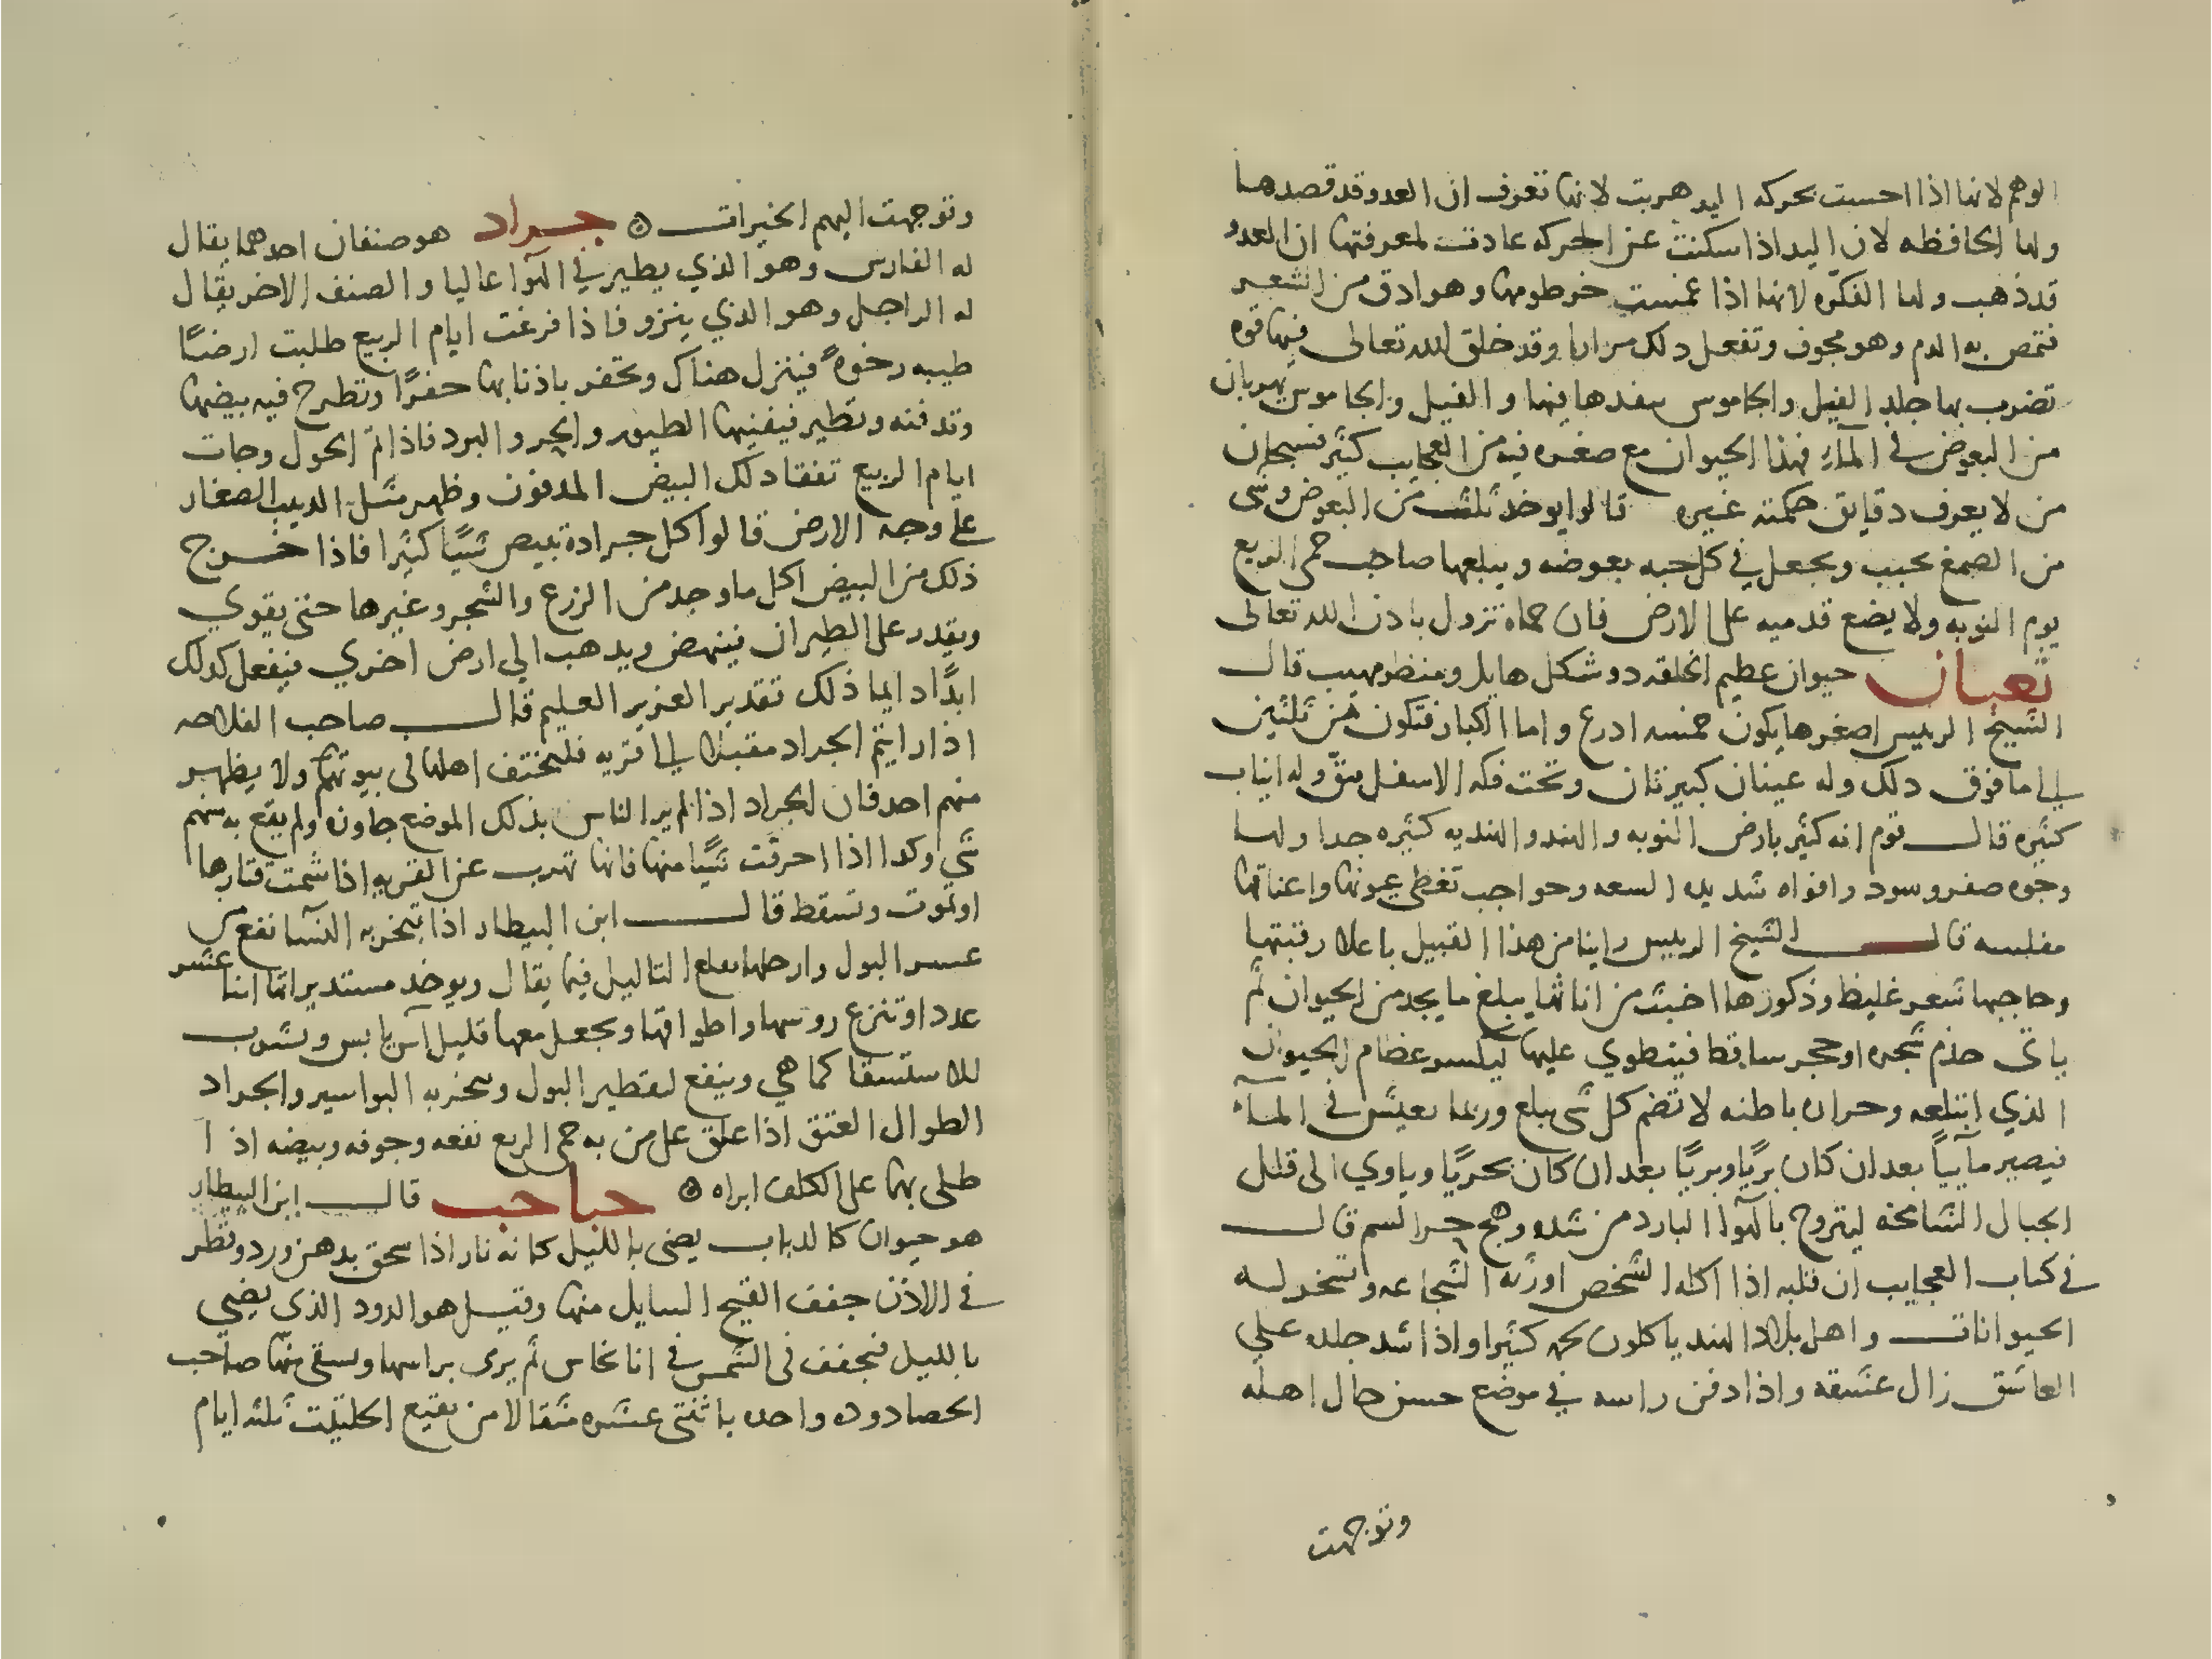 الوهم لانها اذا احست بحركه اليد هربت لانها تعرف ان العدو قد قصدها
ولها الحافظه لان اليد اذا سكنت عن الحركه عادت لمعرفتها ان العدو
قد ذهب ولها الفكره لانها اذا غمست خرطومها وهو ادق من الشعر
فتمص به الدم وهو مجوف وتفعل دلك مرارا وقد خلق الله تعالى فيها قوه
تضرب بها جلد الفيل والجاموس سفدها فيها و الفيل والجاموس يهربان
من البعوض في المآء فهذا الحيوان مع صغره فيه من العجايب كثير فسبحان
من لا يعرف دقايق حكمته غيره قالوا يوخد ثلث من البعوض وشى
من الصمغ يحبب ويجعل في كل حبه بعوضه ويبلعها صاحب حمى الربع
يوم النوبه ولا يضع قدميه على الارض فان حماه تزول باذن الله تعالى
ثعبان حيوان عظيم الخلقه دو شكل هايل ومنظر مهيب قال
الشيخ الرييس اصغرها يكون خمسه ادرع واما الكبار فتكون من ثلثين
الى ما فوق دلك وله عينان كبيرتان وتحت فكه الاسفل وله انياب
كثيره قال قوم انه كثير بارض النوبه والهند والهنديه كثيره جدا ولها
وجوه صفر وسود وافواه شديده السعه وحواجب تغطي عيونها واعناقها
مفلسه قال الشيخ الرييس راينا من هذا القبيل باعلا رقبتها
وحاجبها شعر غليظ وذكورها اخبث من اناثها يبلغ ما يجد من الحيوان ثم
ياتى جذم شجره او حجر ساقط فينطوي عليها ليكسر عظام الحيوان
الذي ابتلعه وحراره باطنه لا تضم كل شى يبلع وربما يعيش في المآء
فيصير مآييا بعد ان كان بريا وبريا بعد ان كان بحريا وياوي الى قلل
الجبال الشامخه ليتروح بالهوآ البارد من شده وهج حر السم قال
في كتاب العجايب ان قلبه اذا اكله الشخص اورثه الشجاعه وتسخر له
الحيوانات واهل بلاد الهند ياكلون لحمه كثيرا واذا شد جلده علي
العاشق زال عشقه واذا دفن راسه في موضع حسن حال اهله
وتوجهت
وتوجهت اليهم الخيرات جراد هو صنفان احدهما يقال
له الفارس وهو الذي يطير في الهوآ عاليا والصنف الاخر يقال
له الراجل وهو الذي ينزو فاذا فرغت ايام الربيع طلبت ارضا
طيبه رخوة فينزل هناك وتحفر باذنابها حفرا وتطرح فيه بيضها
وتدفنه وتطير فيفنيها الطيور والحر والبرد فاذا تم الحول وجات
ايام الربيع تفقا دلك البيض المدفون وظهر مثل الدبيب الصغار
على وجه الارض قالوا كل جرادة تبيض شيئا كثيرا فاذا خرج
ذلك من البيض اكل ما وجد من الزرع والشجر وغيرها حتى يقوي
ويقدر على الطيران فينهض ويدهب الى ارض اخري فيفعل كدلك
ابدا دايما ذلك تقدير العزيز العليم قال صاحب الفلاحه
اذا رايتم الجراد مقبلا الى قريه فليختف اهلها فى بيوتهم ولا يظهر
منهم احد فان الجراد اذا لم ير الناس بذلك الموضع جاوزه ولم يقع به منهم
شي وكدا اذا احرقت شيئا منها فانها تهرب عن القريه اذا شمت قتارها
او تموت وتسقط قال ابن البيطار اذا تبخر به النسآ نفع من
عسر البول وارجلها تقلع التاليل فيما يقال ويوخد مستديراتها اثنا عشر
عددا وتنزع روسها واطرافها ويجعل معها قليل آس يابس ويشرب
للاستسقا كما هي وينفع لتقطير البول ويبخر به البواسير والجراد
الطوال العتق اذا علق على من به حمى الربع نفعه وجوفه وبيضه اذا
طلى بها على الكلف ابراه حباحب قال ابن البيطار
هو حيوان كالدباب يضى بالليل كانه نار اذا سحق بدهن ورد وقطر
في الاذن جفف القيح السايل منها وقيل هو الدود الذى يضي
بالليل فيجفف فى الشمس في انا نحاس ثم يرى براسها وتسقى منها صاحب
الحصا دوده واحده باثنتى عشره مثقالا من نقيع الحلتيت ثلثه ايام